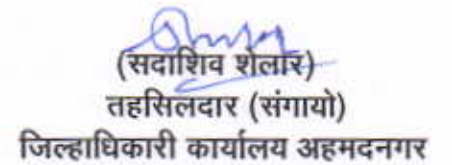 (सदाशिव शेलार)
तहसिलदार (संगायो)
जिल्हाधिकारी कार्यालय अहमदनगर